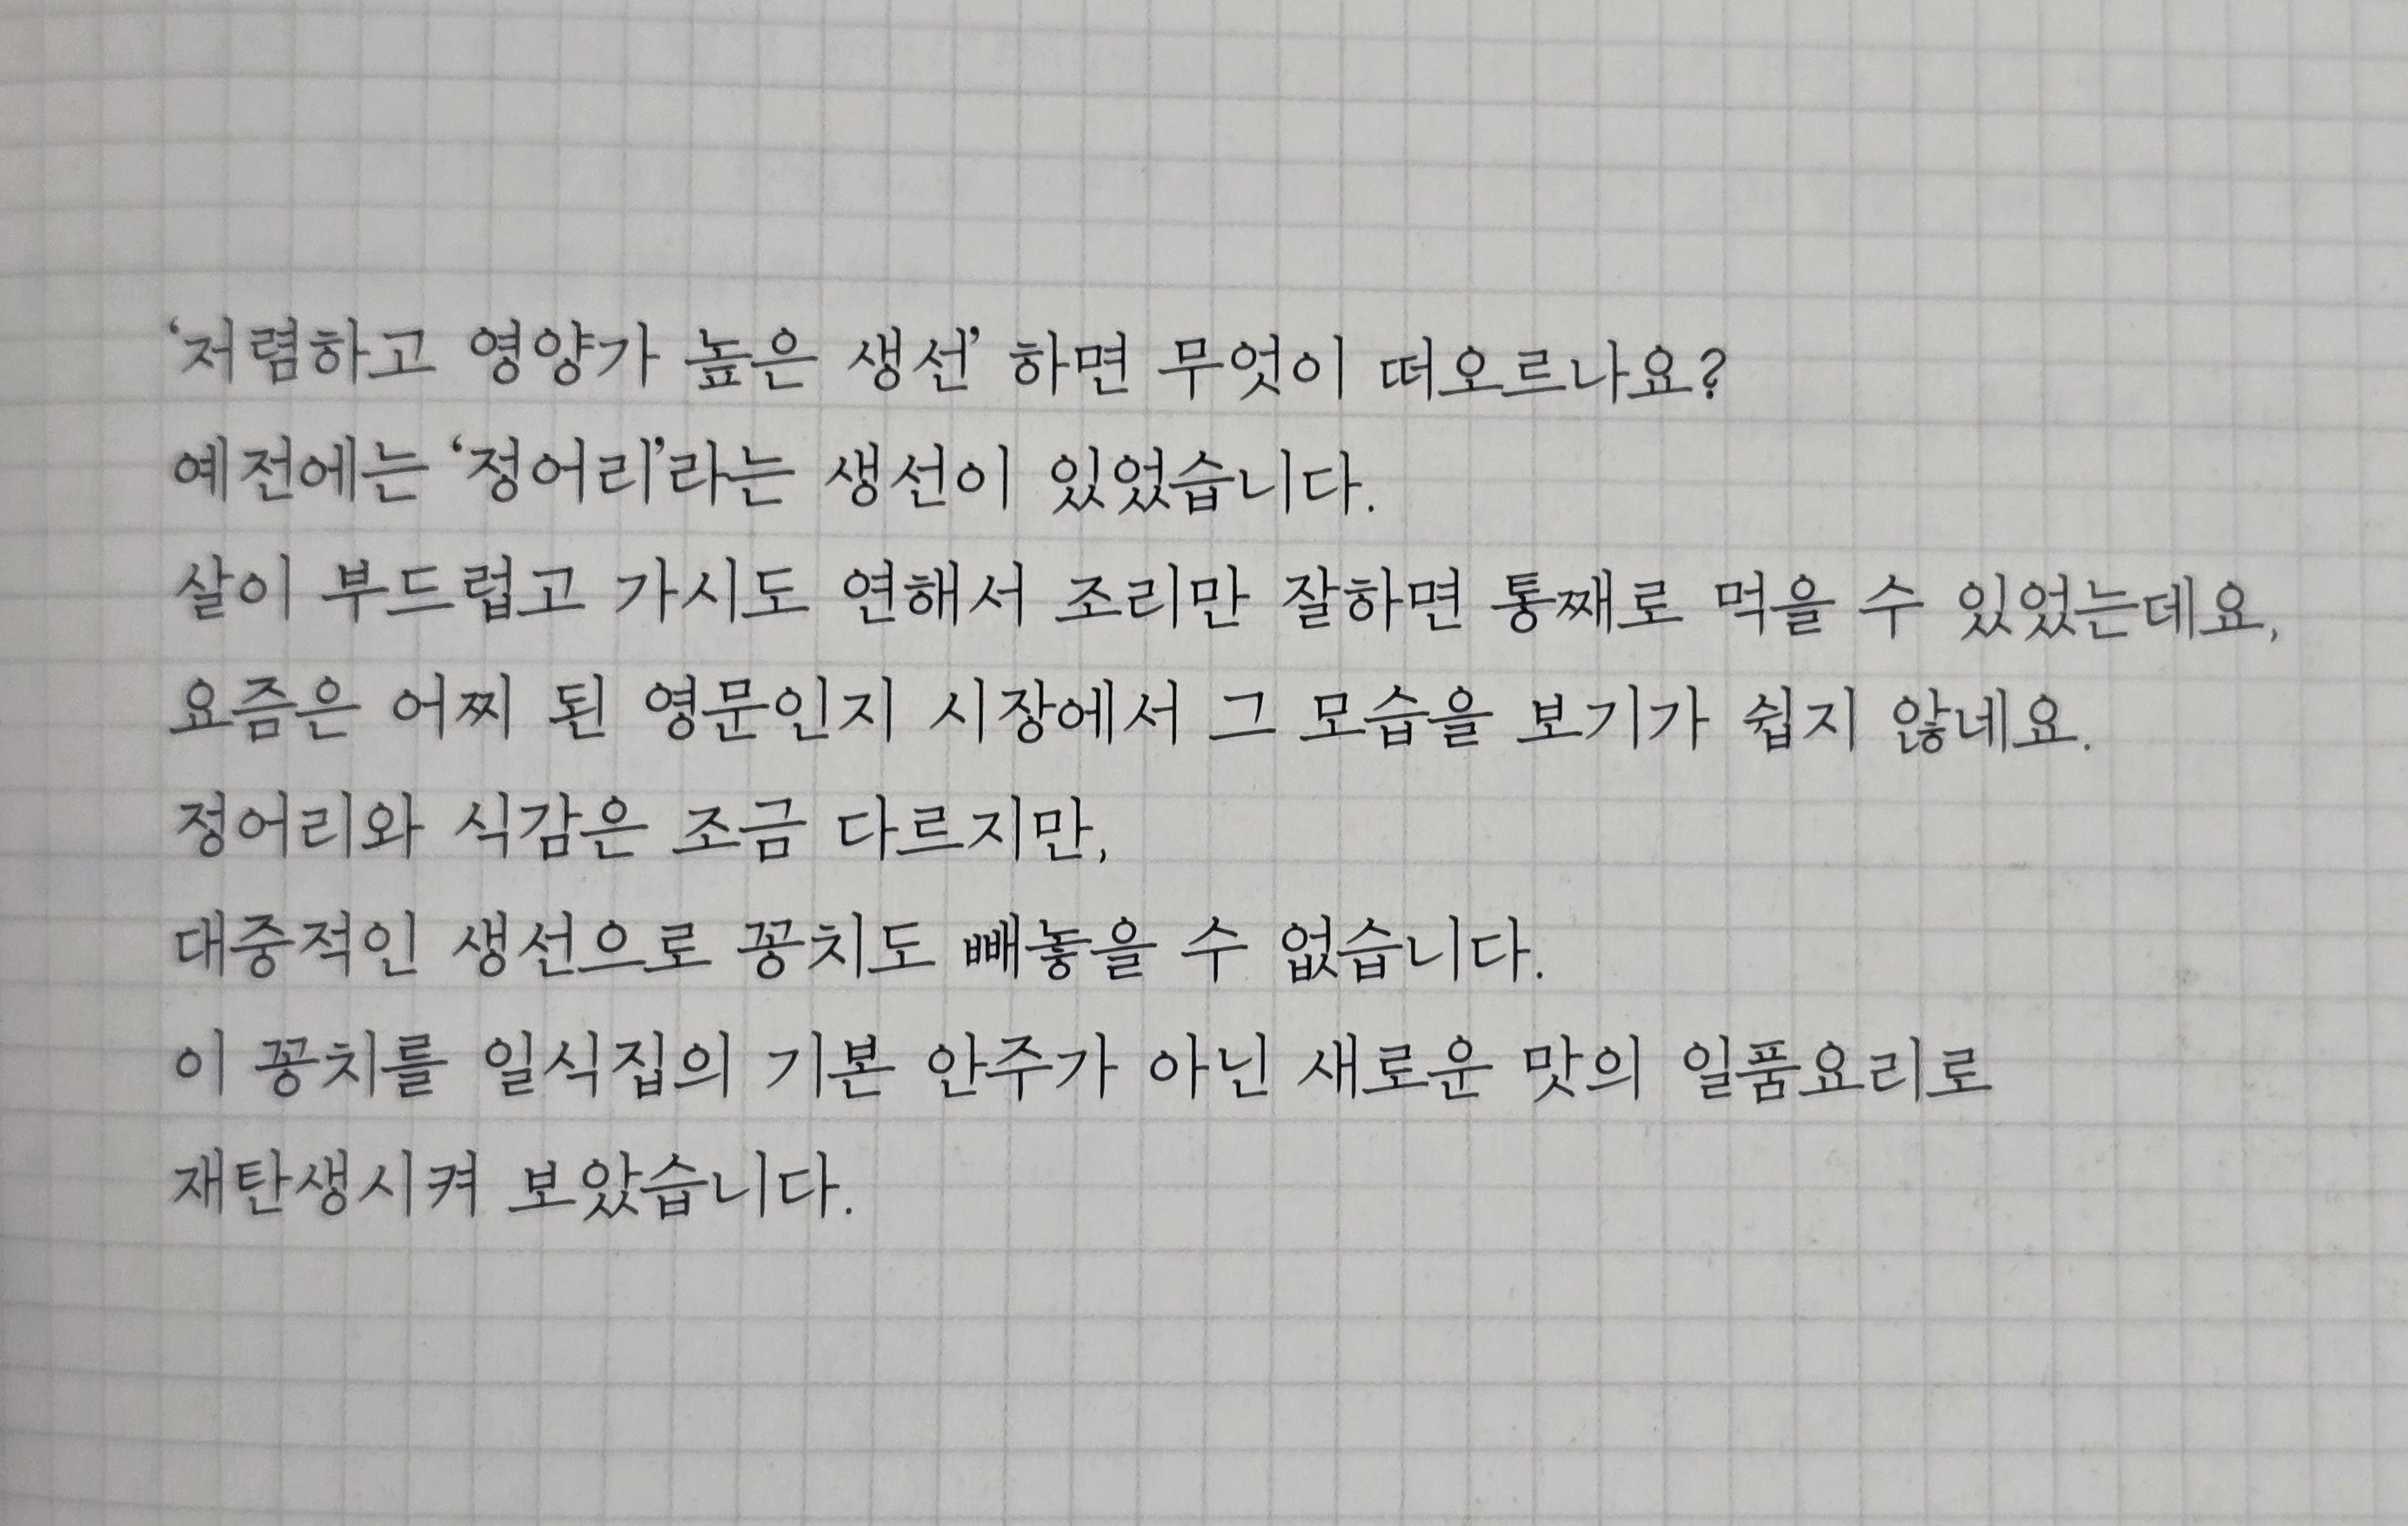 ‘저렴하고 영양가 높은 생선’ 하면 무엇이 떠오르나요?
예전에는 ‘정어리’라는 생선이 있었습니다.
살이 부드럽고 가시도 연해서 조리만 잘하면 통째로 먹을 수 있었는데요,
요즘은 어찌 된 영문인지 시장에서 그 모습을 보기가 쉽지 않네요.
정어리와 식감은 조금 다르지만,
대중적인 생선으로 꽁치도 빼놓을 수 없습니다.
이 꽁치를 일식집의 기본 안주가 아닌 새로운 맛의 일품요리로
재탄생시켜 보았습니다.